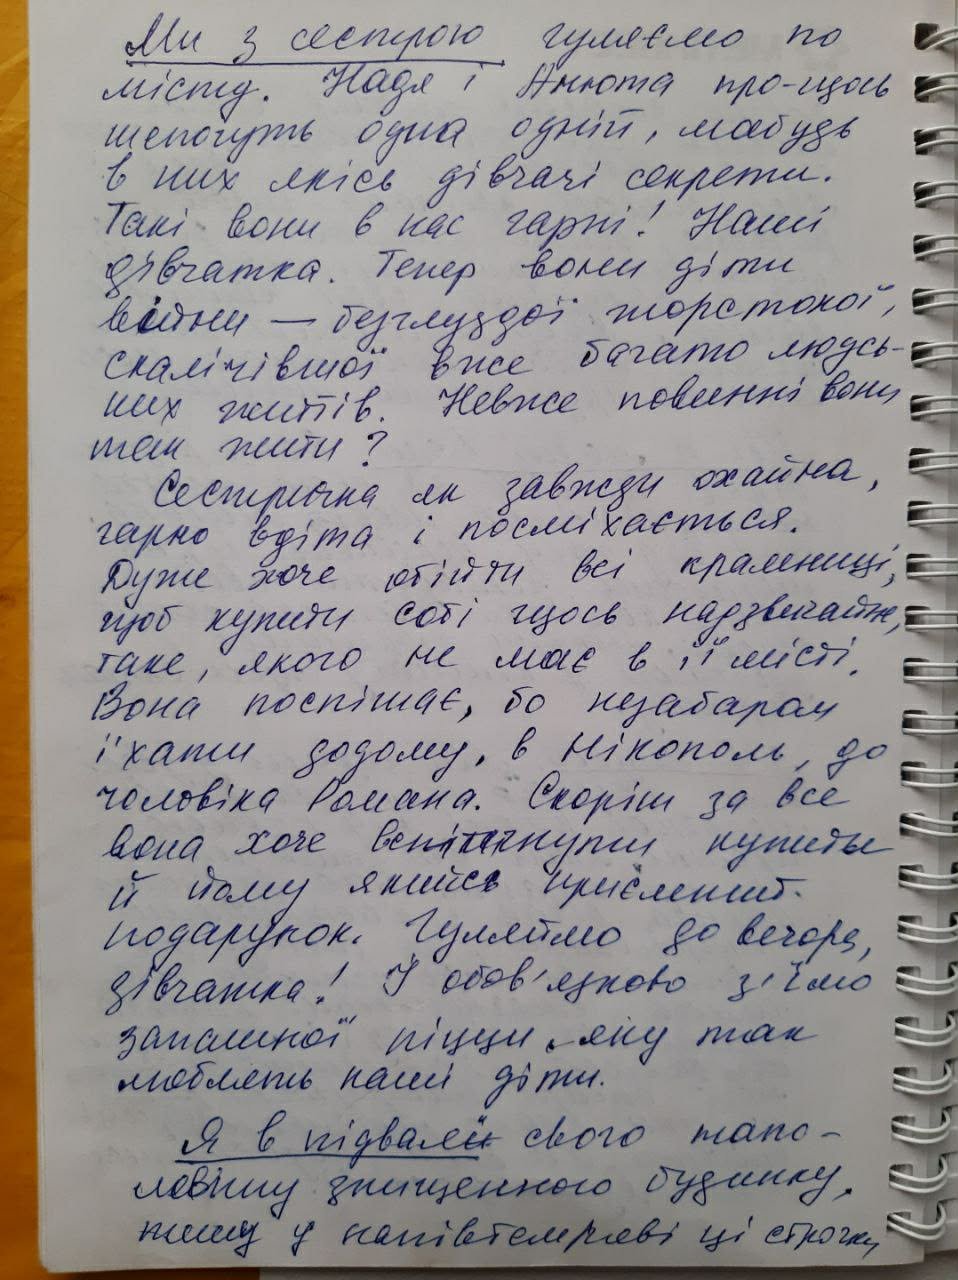 Ми з сестрою гуляємо по
місту. Надя і Анюта про-щось
шепочуть одна одній, мабудь
в них якісь дівчачі секрети.
Такі вони в нас гарні! Наші
дівчатка. Тепер вони діти
війни — безглуздої жорстокої,
скалічівшої вже багато людсь-
ких життів. Невже повинні вони
так жити?
Сестричка як завжди охайна,
гарно вдіта і посміхається.
Дуже хоче обійти всі крамниці,
щоб купити собі щось надзвичайне,
таке, якого не має в її місті.
Вона поспішає, бо незабаром
їхати додому, в Нікополь, до
чоловіка Романа. Скоріш за все
вона хоче встигнути купити
й йому якийсь приємний
подарунок. Гуляймо до вечора,
дівчатка! І обов'язково з'їмо
запашної піцци, яку так
люблять наші діти.
Я в підвалі свого напо-
ловину знищенного будинку,
пишу у напівтемряві ці строчки